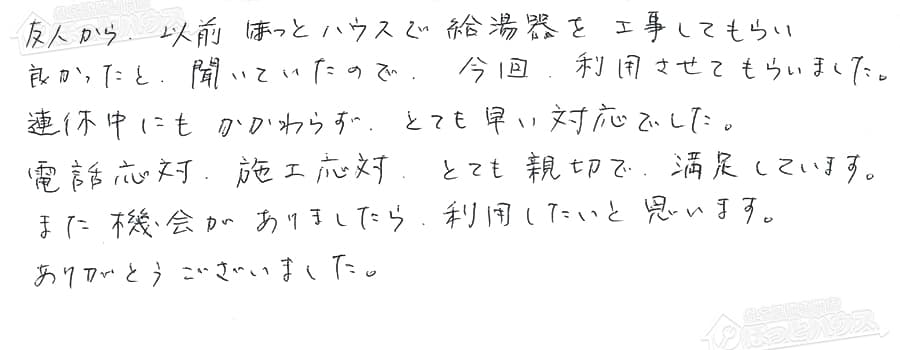 友人から、以前 ほっとハウスで 給湯器を 工事してもらい
良かったと、聞いていたので、今回、利用させてもらいました。
連休中にも かかわらず、とても 早い 対応でした。
電話応対、施工応対、とても 親切で、満足しています。
また 機会が ありましたら、利用したいと 思います。
ありがとう ございました。
ほっとハウス